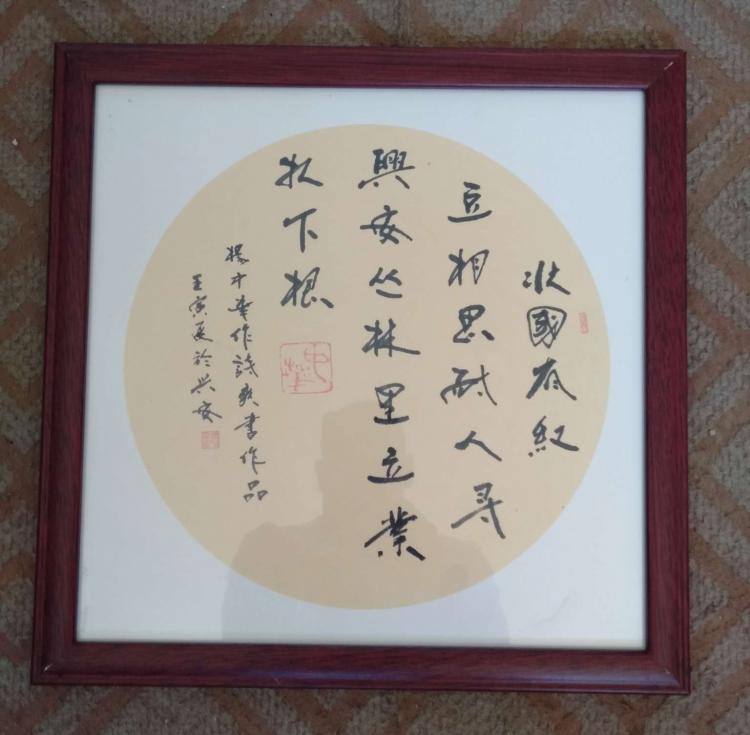 北國有紅
豆相思耐人寻
興安丛林里立業
扎下根
杨中華作詩并書作品
壬寅夏於兴安